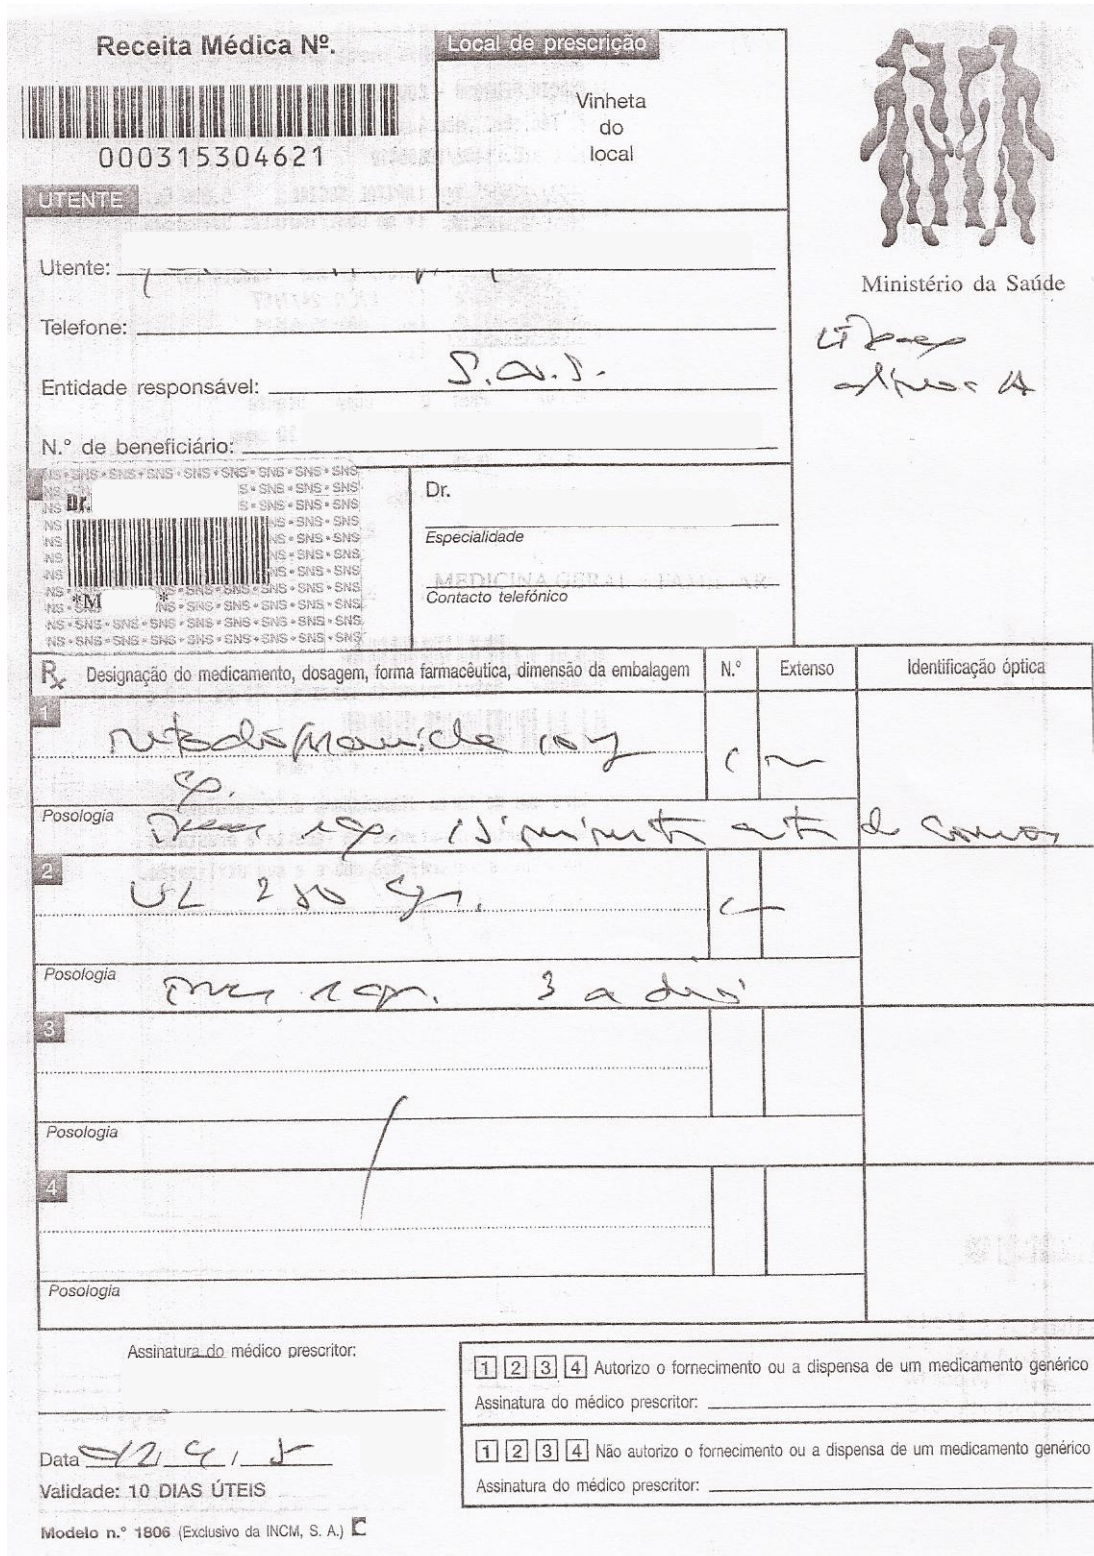 Receita Médica Nº.
000315304621
Local de prescrição
Vinheta
do
local
Ministério da Saúde
UTENTE
Utente:
Telefone:
Entidade responsável: S.A.S.
N.º de beneficiário:
Dr.
*M *
Dr.
Especialidade
MEDICINA GERAL FAMILIAR
Contacto telefónico
Rx Designação do medicamento, dosagem, forma farmacêutica, dimensão da embalagem N.º Extenso Identificação óptica
1
Metoclopramida 10 mg
cp.
Posologia 1 cp. 15 minutos antes de comer
2
UL 250 cp.
Posologia 1 cp. 3 a dia
3
Posologia
4
Posologia
Assinatura do médico prescritor:
1 2 3 4 Autorizo o fornecimento ou a dispensa de um medicamento genérico
Assinatura do médico prescritor:
1 2 3 4 Não autorizo o fornecimento ou a dispensa de um medicamento genérico
Assinatura do médico prescritor:
Data
Validade: 10 DIAS ÚTEIS
Modelo n.º 1806 (Exclusivo da INCM, S. A.)